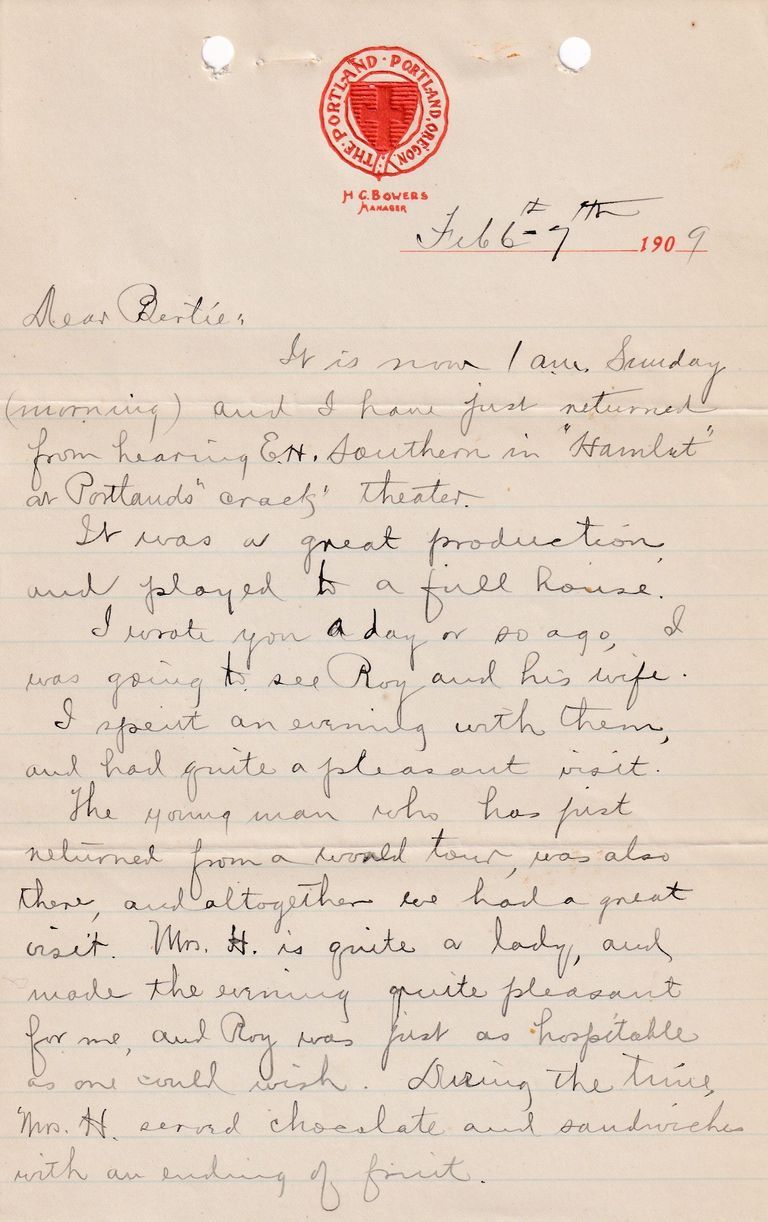 THE · PORTLAND · PORTLAND, OREGON.
H C. BOWERS
MANAGER
Feb 6th - 7th 1909
Dear Bertie:
It is now 1 am. Sunday
(morning) and I have just returned
from hearing E.H. Southern in "Hamlet"
at Portlands "crack" theater.
It was a great production
and played to a full house.
I wrote you a day or so ago, I
was going to see Roy and his wife.
I spent an evening with them,
and had quite a pleasant visit.
The young man who has just
returned from a world tour, was also
there, and altogether we had a great
visit. Mrs. H. is quite a lady, and
made the evening quite pleasant
for me, and Roy was just as hospitable
as one could wish. During the time,
Mrs. H. served chocolate and sandwiches
with an ending of fruit.